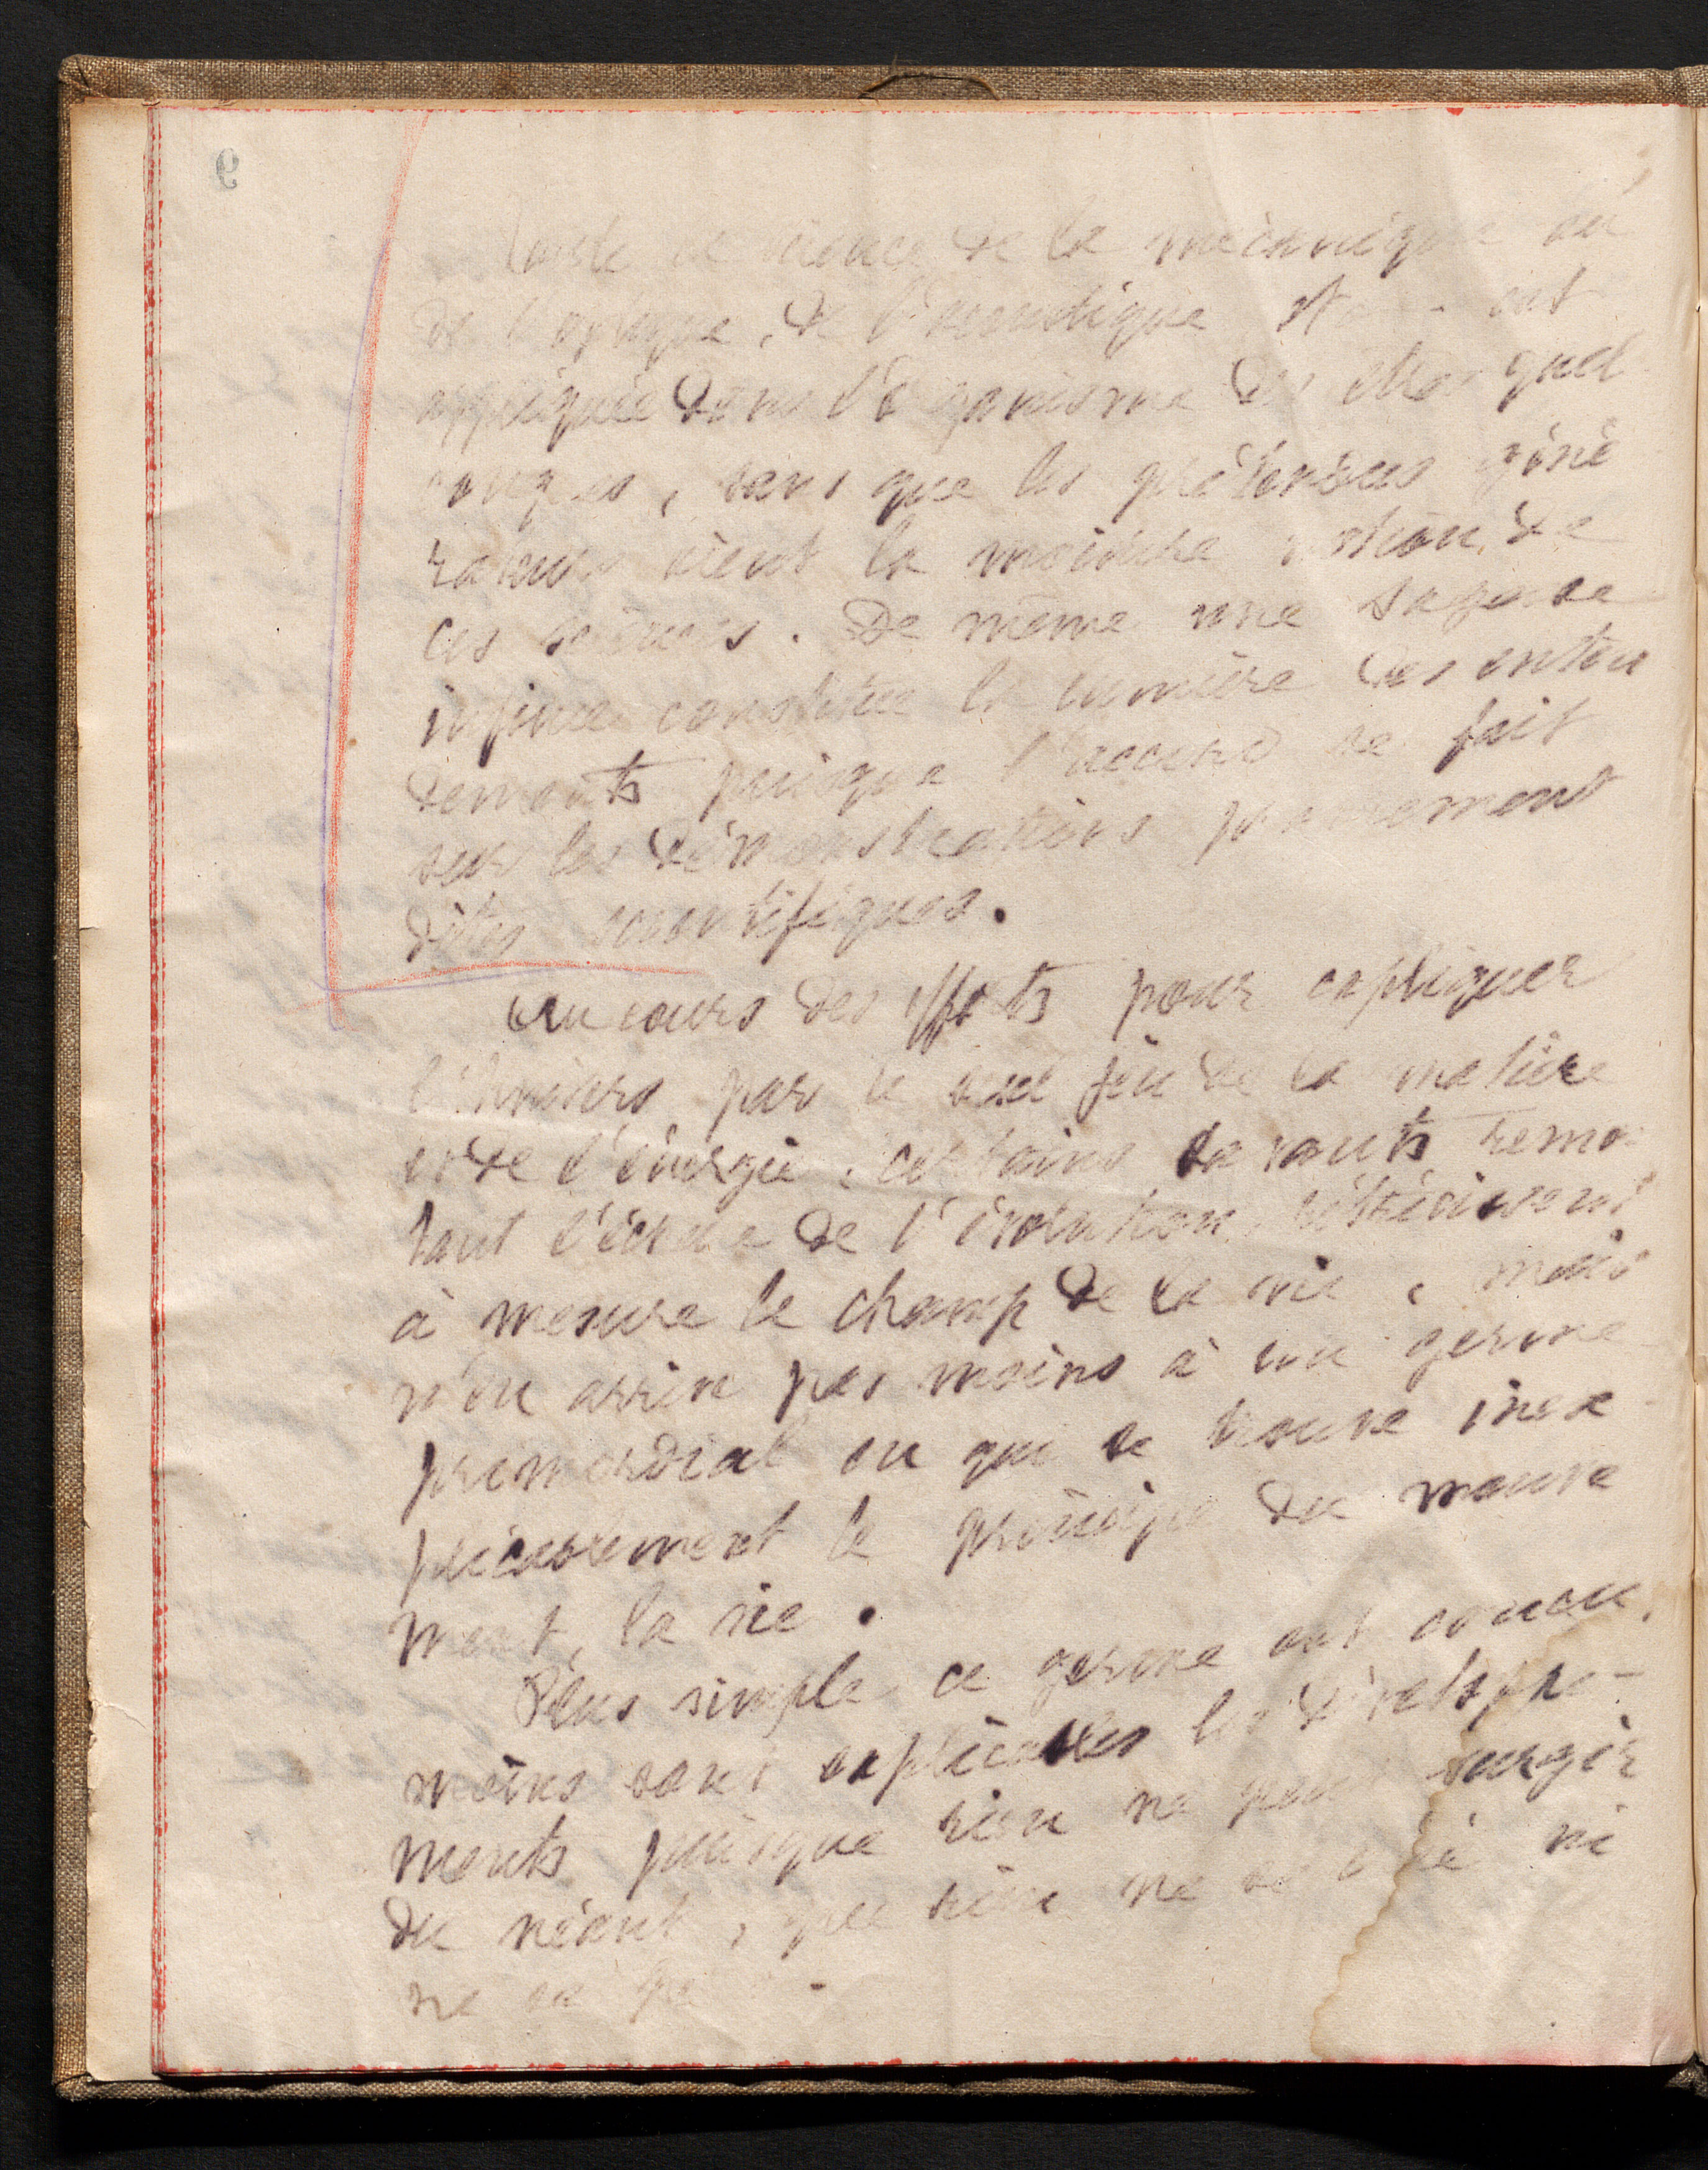 Toute la science de la mécanique ou
de l'optique, de l'acoustique est
appliquée dans l'organisme des êtres quel
conques, sans que les prétendus géné
rateurs aient la moindre notion de
ces sciences. De même une sagesse
infinie constitue la lumière des enten
dements puisque l'accord se fait
sur les démonstrations purement
dites scientifiques.
Au cours des efforts pour expliquer
l'Univers par le seul jeu de la matière
et de l'énergie, certains savants remon
tant l'échelle de l'évolution, rétrécissent
à mesure le champ de la vie, mais
n'en arrive pas moins à un germe
primordial en qui se trouve inex
plicablement le principe du mouve
ment, la vie.
Plus simple ce germe est conçu,
moins sont explicables les développe-
ments puisque rien ne peut surgir
du néant, que rien ne se crée ni
ne se